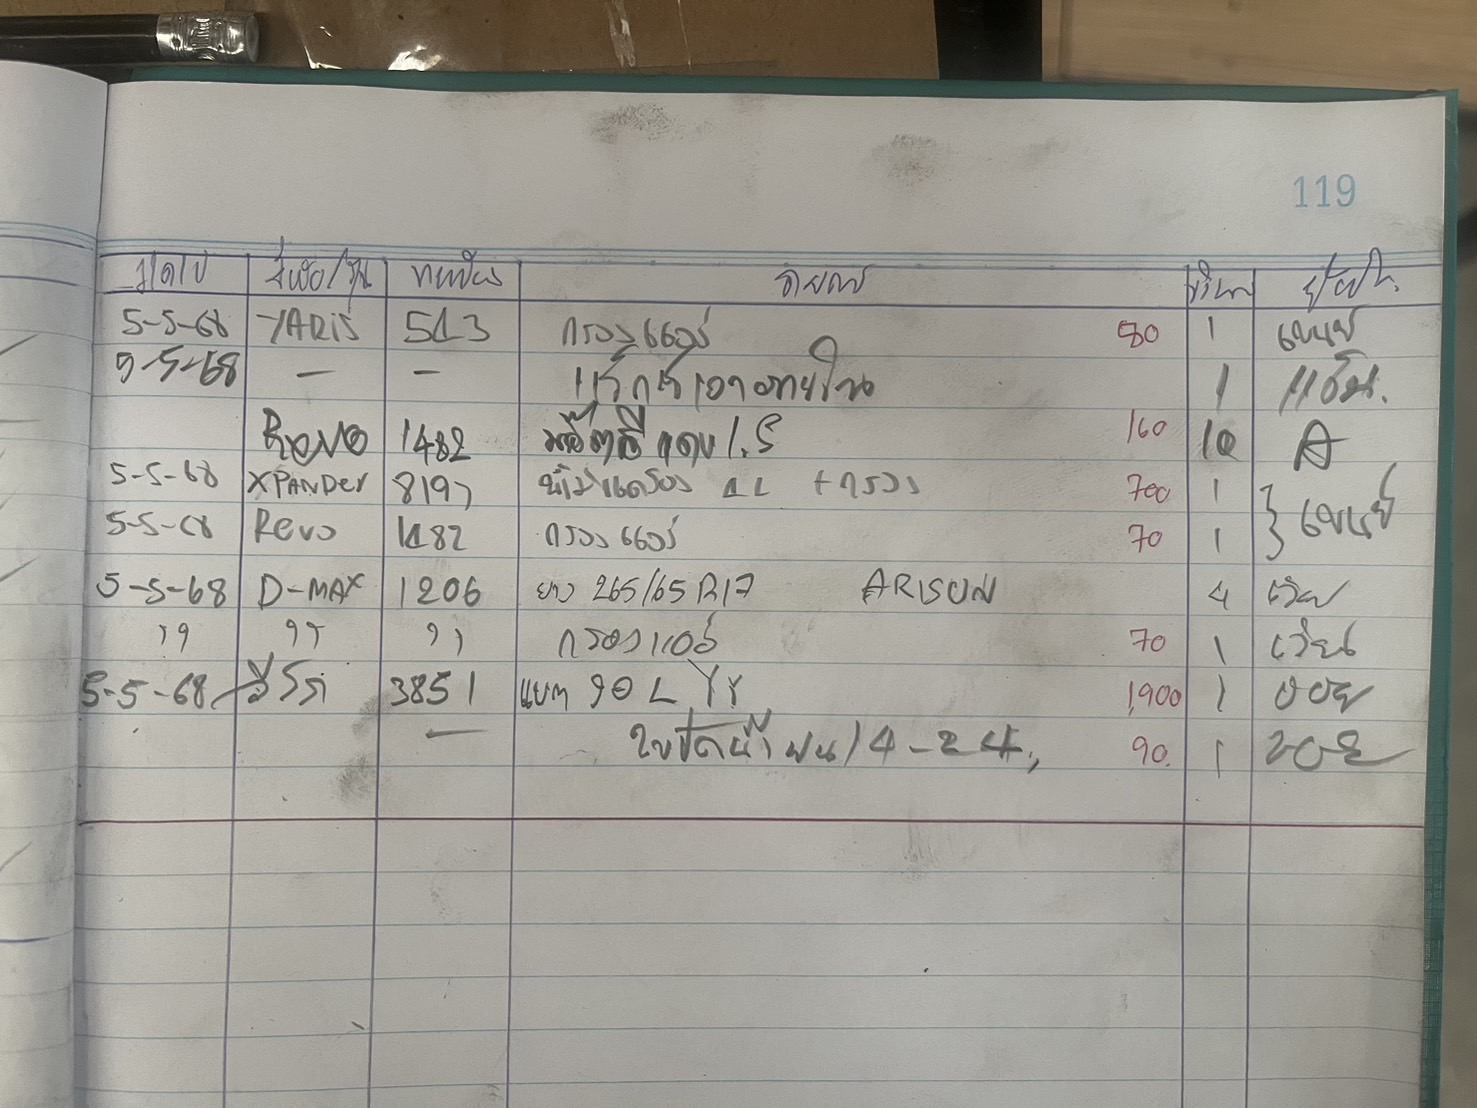 119
ว/ด/ป ยี่ห้อ/รุ่น ทะเบียน รายการ จำนวน ผู้เบิก
5-5-68 YARiS 513 กรองแอร์ 80 1
5-5-68 — — 1
Revo 1482 1.5 160 10 A
5-5-68 XPANDer 8197 น้ำมันเครื่อง 4L +กรอง 700 1
5-5-68 Revo 1482 กรองแอร์ 70 1
5-5-68 D-MAX 1206 ยาง 265/65 R17 ARISUN 4
" " " กรองแอร์ 70 1
5-5-68 3851 แบต 90 L 1,900 1
— ใบปัดน้ำฝน 14-24, 90. 1